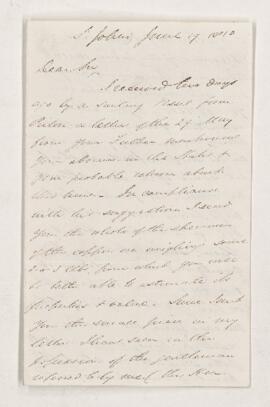 St. John's, June 17, 1850
Dear Sir,
I received two days
ago by a Sailing Vessel from
Boston a letter of the 29 May
from your Father mentioning
your absence in the States &
your probable return about
this time. In compliance
with his suggestion I send
you the whole of the specimen
of the copper ore weighing some
from which you will
be better able to estimate its
properties & value. Since I sent
you the surface piece in my
letter I have seen in the
possession of the gentleman
referred to by me the Hon